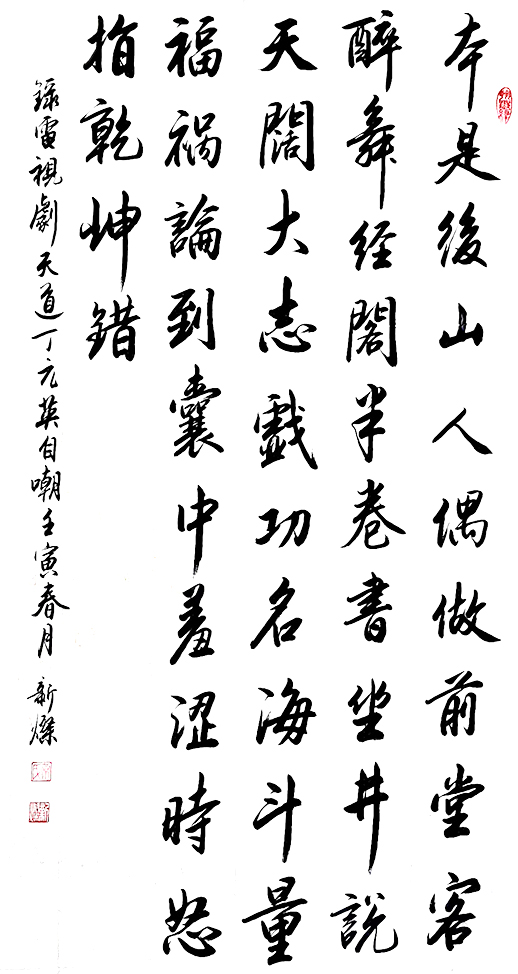 本是後山人偶做前堂客
醉舞经閣半卷書坐井說
天闊大志戲功名海斗量
福祸論到囊中羞涩時怒
指乾坤錯
錄電視劇天道丁元英自嘲壬寅春月 新燦